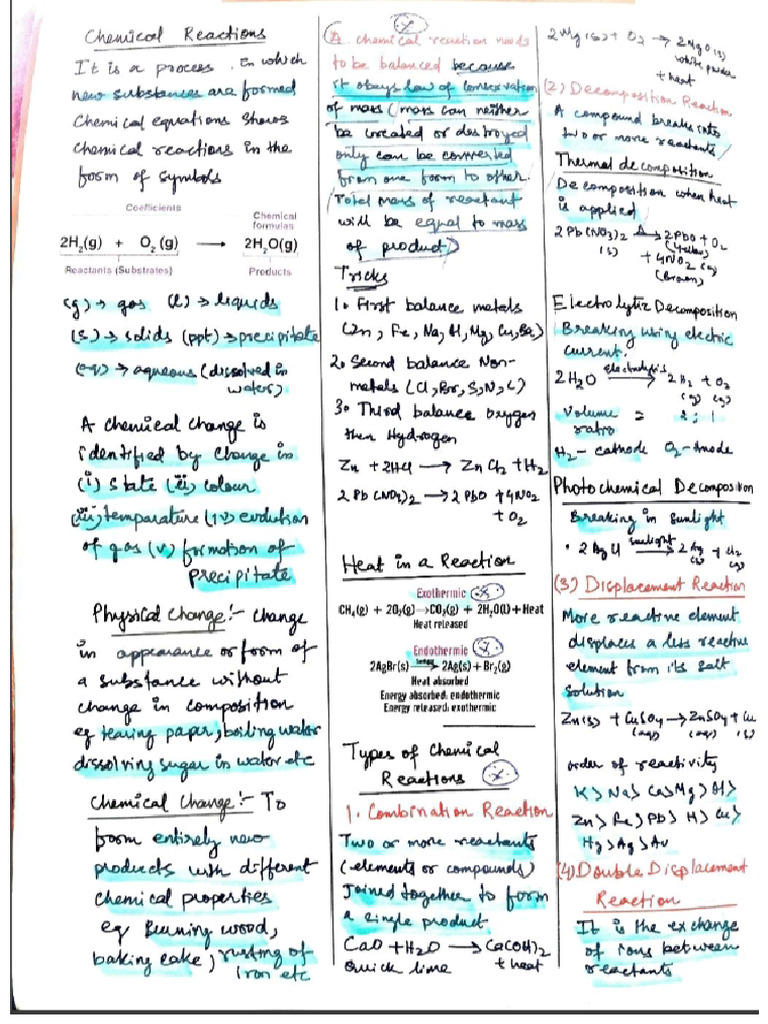 Chemical Reactions
It is a process in which
new substances are formed
Chemical equations shows
Chemical reactions in the
form of symbols
Coefficients
Chemical
formulas
2H₂(g) + O₂(g) ⟶ 2H₂O(g)
Reactants (Substrates)
Products
(g) → gas (l) → liquids
(s) → solids (ppt) → precipitate
(aq) → aqueous (dissolved in
water)
A chemical change is
identified by change in
(i) state (ii) colour
(iii) temperature (iv) evolution
of gas (v) formation of
precipitate
Physical Change:- change
in appearance or form of
a substance without
change in composition
eg tearing paper, boiling water
dissolving sugar in water etc
Chemical Change:- To
form entirely new
products with different
chemical properties
eg Burning wood,
baking cake, rusting of
iron etc
A chemical reaction needs
to be balanced because
it obeys law of conservation
of mass (mass can neither
be created or destroyed
only can be converted
from one form to other.
Total mass of reactant
will be equal to mass
of product)
Tricks
1. First balance metals
(Zn, Fe, Na, Al, Mg, Cu,
2. Second balance Non-
metals (Cl, Br, S, N, C)
3. Third balance oxygen
then Hydrogen
Zn + 2HCl ⟶ ZnCl₂ + H₂
2Pb(NO₃)₂ ⟶ 2PbO + 4NO₂
+ O₂
Heat in a Reaction
Exothermic
CH₄(g) + 2O₂(g) ⟶ CO₂(g) + 2H₂O(l) + Heat
Heat released
Endothermic
2AgBr(s) ⟶ 2Ag(s) + Br₂(g)
Heat absorbed
Energy absorbed: endothermic
Energy released: exothermic
Types of Chemical
Reactions
1. Combination Reaction
Two or more reactants
(elements or compounds)
Joined together to form
a single product
CaO + H₂O ⟶ Ca(OH)₂
Quick lime + heat
2Mg(s) + O₂ → 2MgO(s)
white powder
+ heat
(2) Decomposition Reaction
A compound breaks into
two or more reactants
Thermal decomposition
Decomposition when heat
is applied
2Pb(NO₃)₂ —Δ→ 2PbO + O₂
(s) (Yellow)
+ 4NO₂(g)
(brown)
Electrolytic Decomposition
Breaking using electric
current.
2H₂O —electrolysis→ 2H₂ + O₂
(g) (g)
Volume = 2 : 1
ratio
H₂ - cathode O₂ - Anode
Photochemical Decomposition
Breaking in sunlight
• 2AgCl —sunlight→ 2Ag + Cl₂
(s) (g)
(3) Displacement Reaction
More reactive element
displaces a less reactive
element from its salt
solution
Zn(s) + CuSO₄ → ZnSO₄ + Cu
(aq) (aq) (s)
order of reactivity
K > Na > Ca > Mg > Al >
Zn > Fe > Pb > H > Cu >
Hg > Ag > Au
(4) Double Displacement
Reaction
It is the exchange
of ions between
reactants